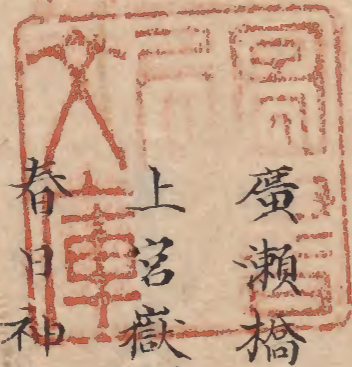 廣瀬橋
上宮嶽
春日神
文庫